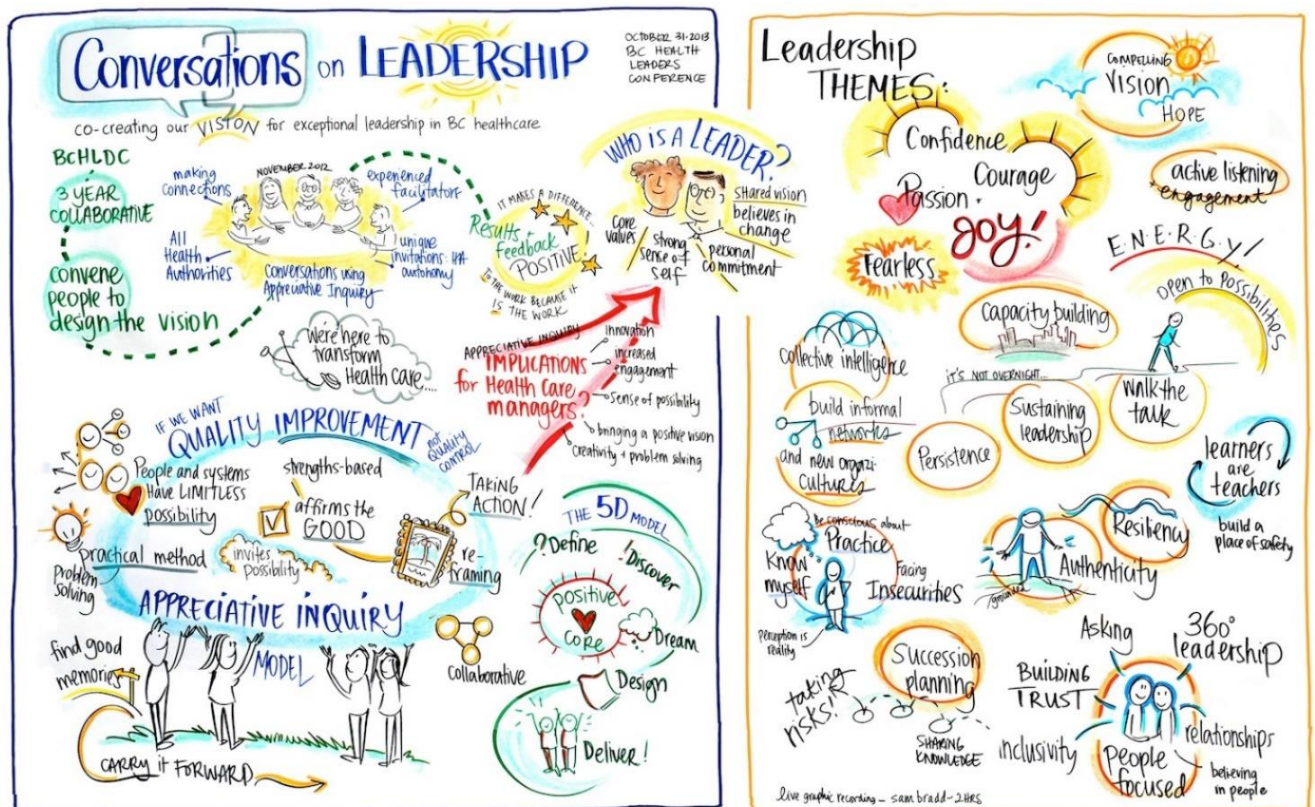 Conversations on LEADERSHIP
OCTOBER 31·2013
BC HEALTH
LEADERS
CONFERENCE
co-creating our VISION for exceptional leadership in BC healthcare
BCHLDC
3 YEAR
COLLABORATIVE
convene
people to
design the vision
making
connections
NOVEMBER 2012
experienced
facilitators
All
Health
Authorities
Conversations using
Appreciative Inquiry
unique
invitations: HA
autonomy
IT MAKES A DIFFERENCE...
Results +
feedback
POSITIVE
THE WORK BECAUSE IT
IS THE WORK
WHO IS A LEADER?
Core
values
strong
sense of
self
personal
commitment
shared vision
believes in
change
We're here to
transform
Health Care....
APPRECIATIVE INQUIRY
IMPLICATIONS
for Health Care
managers?
innovation
increased
engagement
sense of possibility
bringing a positive vision
Creativity + problem solving
IF WE WANT
QUALITY IMPROVEMENT
not
QUALITY
CONTROL
People and systems
Have LIMITLESS
possibility
strengths-based
affirms the
GOOD
TAKING
ACTION!
practical method
invites
possibility
re-
framing
Problem
solving
APPRECIATIVE INQUIRY
MODEL
find good
memories
CARRY it FORWARD
collaborative
THE 5D MODEL
? Define
! Discover
positive
core
Dream
Design
Deliver!
Leadership
THEMES:
COMPELLING
Vision
HOPE
Confidence
Courage
Passion
JOY!
Fearless
active listening
+ engagement
E·N·E·R·G·Y!
open to possibilities
capacity building
collective intelligence
IT'S NOT OVERNIGHT...
Walk the
talk
build informal
networks
and new organzi
cultures
Persistence
Sustaining
leadership
learners
are
teachers
build a
place of safety
Be conscious about
Practice
Know
myself
Facing
Insecurities
perception is
reality
Resiliency
Authenticity
grounded
taking
risks!!
Succession
planning
SHARING
KNOWLEDGE
Asking
360°
leadership
BUILDING
TRUST
inclusivity
People
focused
relationships
believing
in people
live graphic recording - sam bradd - 2HRS